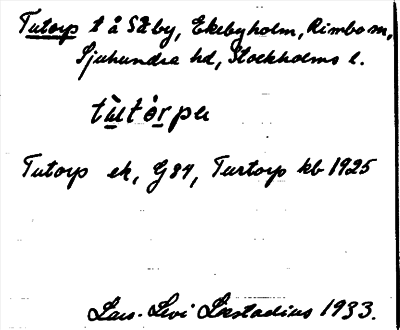 Tutorp t å Säby, Ekebyholm, Rimbo sn,
Sjuhundra hd, Stockholms l.
tùtórpu
Tutorp ek, G84, Turtorp kb 1925
Lars-Levi Læstadius 1933.